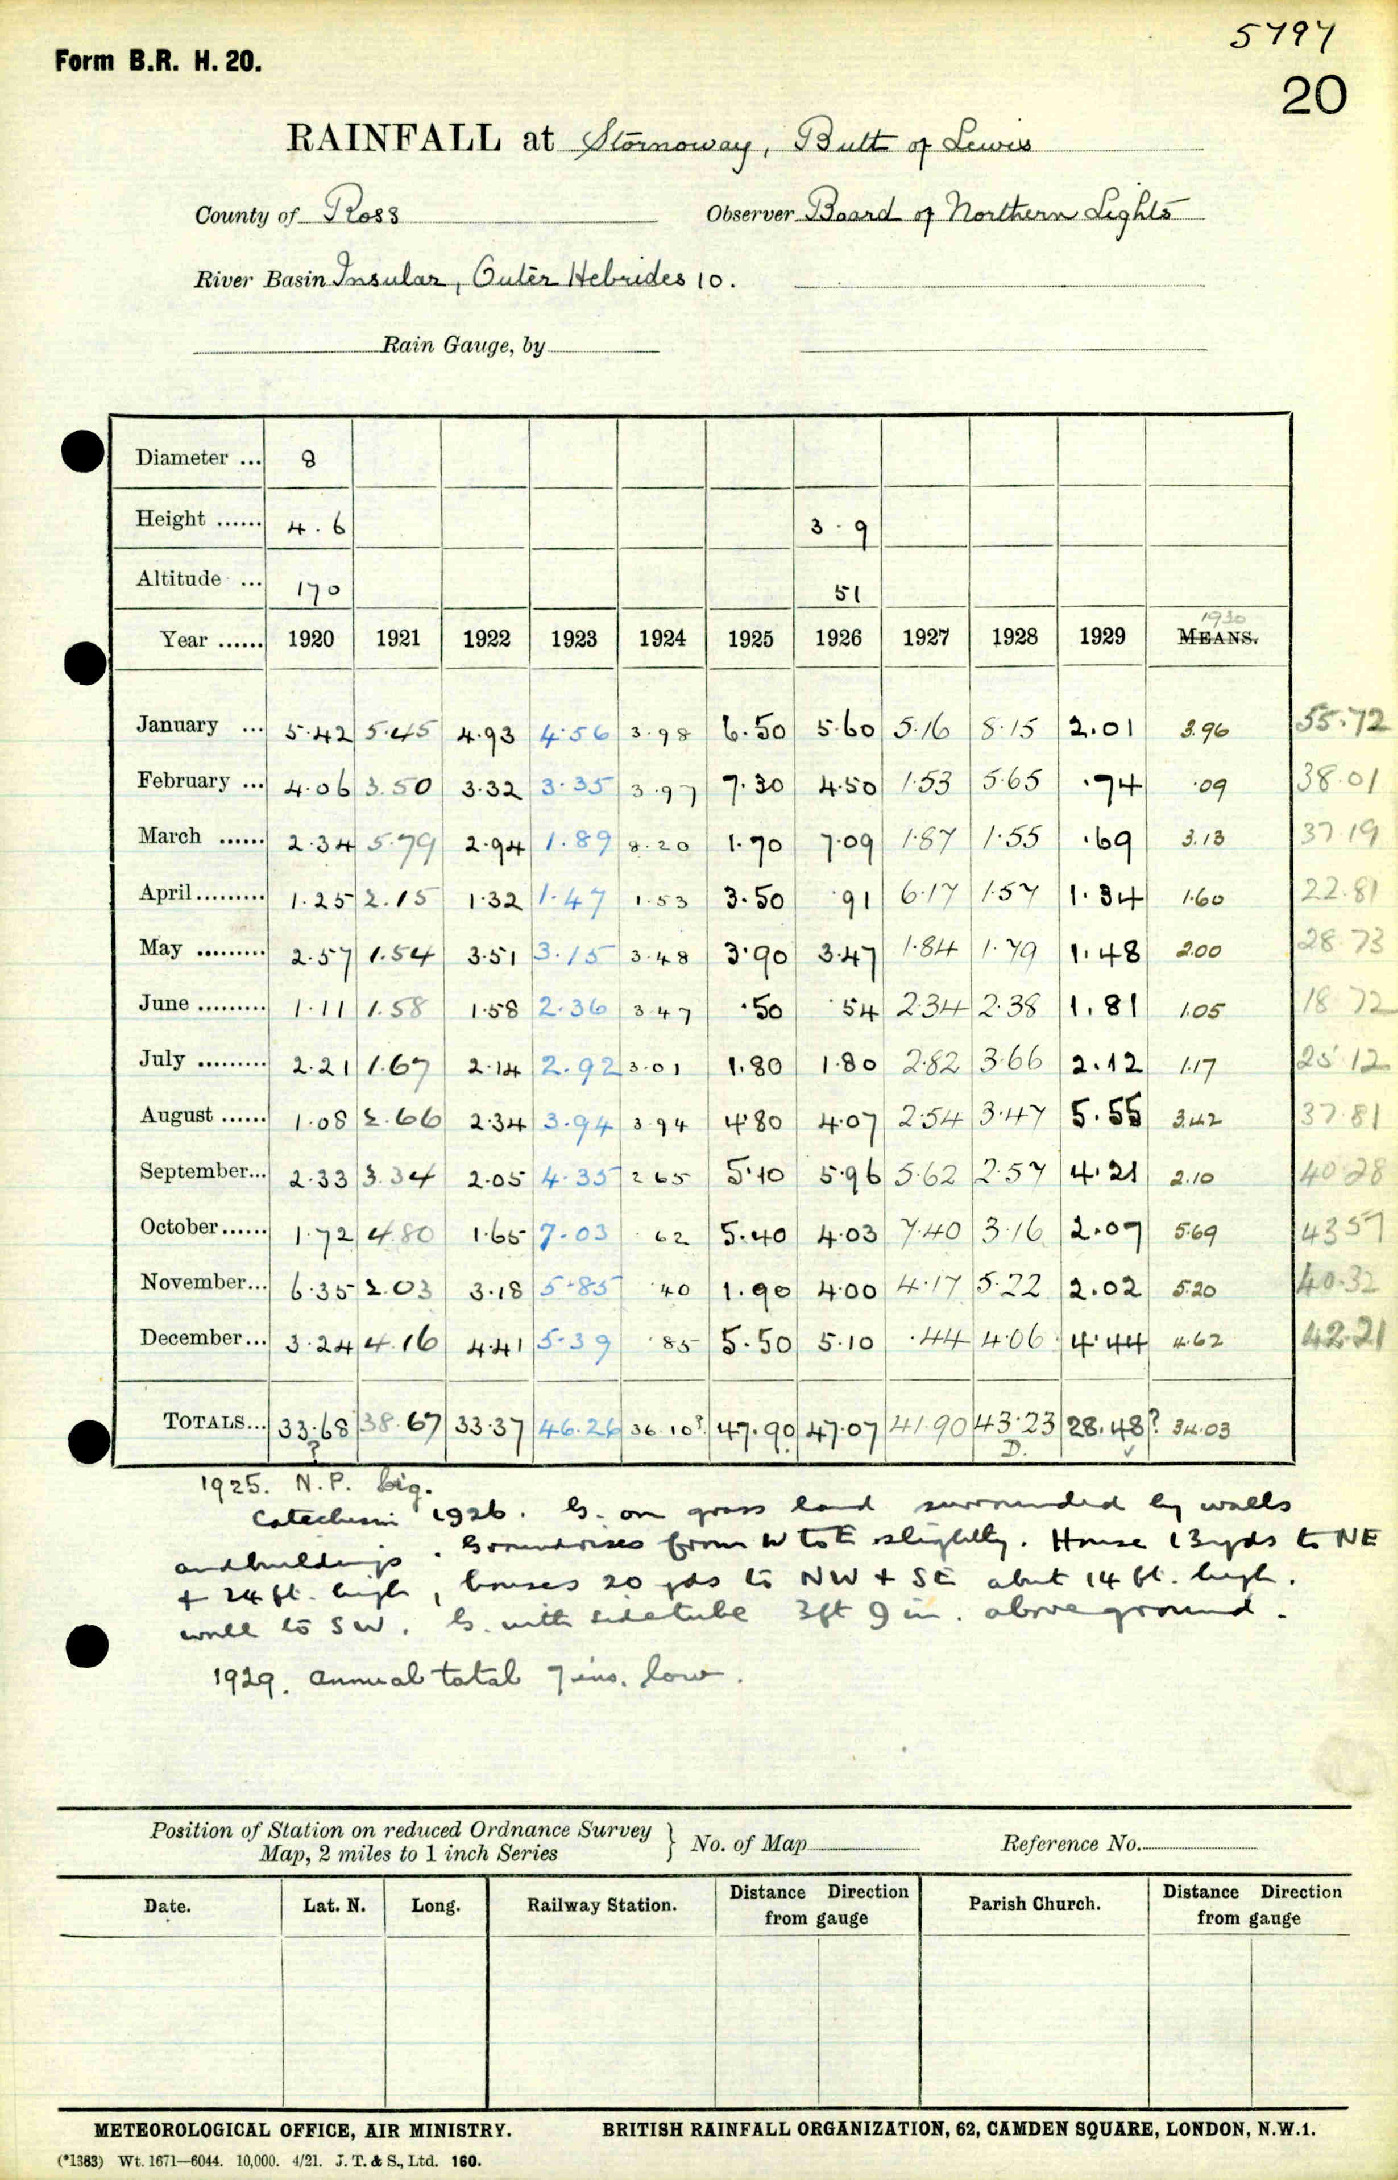 5797
Form B.R. H. 20.
20
RAINFALL at Stornoway, Butt of Lewis
County of Ross Observer Board of Northern Lights
River Basin Insular, Outer Hebrides 10.
Rain Gauge, by
Diameter ... 8
Height ...... 4.6 3.9
Altitude ... 170 51
1930
Year ...... 1920 1921 1922 1923 1924 1925 1926 1927 1928 1929 MEANS.
January ... 5.42 5.45 4.93 4.56 3.98 6.50 5.60 5.16 8.15 2.01 3.96 55.72
February ... 4.06 3.50 3.32 3.35 3.97 7.30 4.50 1.53 5.65 .74 .09 38.01
March ...... 2.34 5.79 2.94 1.89 8.20 1.70 7.09 1.87 1.55 .69 3.13 37.19
April......... 1.25 2.15 1.32 1.47 1.53 3.50 .91 6.17 1.57 1.34 1.60 22.81
May ......... 2.57 1.54 3.51 3.15 3.48 3.90 3.47 1.84 1.79 1.48 2.00 28.73
June ......... 1.11 1.58 1.58 2.36 3.47 .50 .54 2.34 2.38 1.81 1.05 18.72
July ......... 2.21 1.67 2.14 2.92 3.01 1.80 1.80 2.82 3.66 2.12 1.17 25.12
August ...... 1.08 2.66 2.34 3.94 3.94 4.80 4.07 2.54 3.47 5.55 3.42 37.81
September... 2.33 3.34 2.05 4.35 2.65 5.10 5.96 5.62 2.57 4.21 2.10 40.28
October...... 1.72 4.80 1.65 7.03 .62 5.40 4.03 7.40 3.16 2.07 5.69 43.57
November... 6.35 2.03 3.18 5.85 .40 1.90 4.00 4.17 5.22 2.02 5.20 40.32
December... 3.24 4.16 4.41 5.39 .85 5.50 5.10 .44 4.06 4.44 4.62 42.21
TOTALS... 33.68 38.67 33.37 46.26 36.10? 47.90 47.07 41.90 43.23 28.48? 34.03
? D. v
1925. N.P. big.
Catechism 1926. G. on grass land surrounded by walls
and buildings. Ground rises from W to E slightly. House 13 yds to NE
+ 24 ft. high, houses 20 yds to NW + SE about 14 ft. high.
wall to SW. G. with side tube 3ft 9 in. above ground.
1929. Annual total 7 ins. low.
Position of Station on reduced Ordnance Survey
Map, 2 miles to 1 inch Series } No. of Map Reference No.
Date. Lat. N. Long. Railway Station. Distance Direction from gauge Parish Church. Distance Direction from gauge
METEOROLOGICAL OFFICE, AIR MINISTRY. BRITISH RAINFALL ORGANIZATION, 62, CAMDEN SQUARE, LONDON, N.W.1.
(*1383) Wt. 1671—6044. 10,000. 4/21. J. T. & S., Ltd. 160.